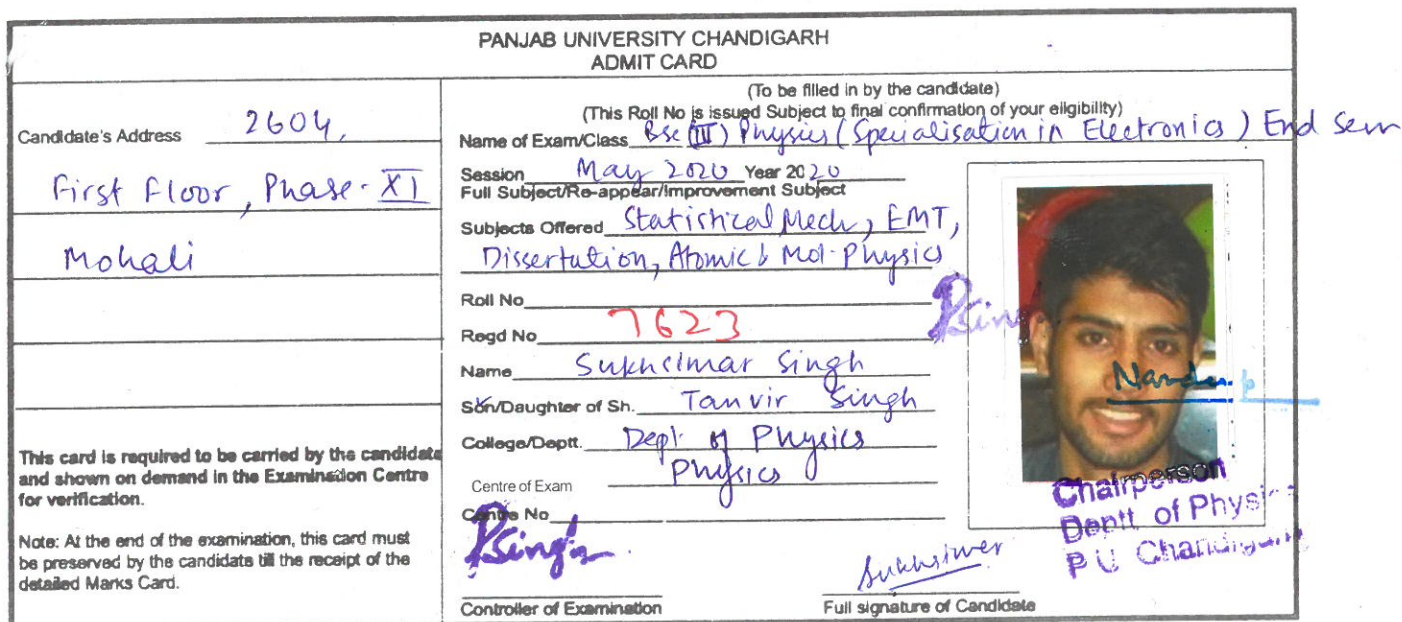 PANJAB UNIVERSITY CHANDIGARH
ADMIT CARD
Candidate's Address 2604,
First Floor, Phase-XI
Mohali
This card is required to be carried by the candidate
and shown on demand in the Examination Centre
for verification.
Note: At the end of the examination, this card must
be preserved by the candidate till the receipt of the
detailed Marks Card.
(To be filled in by the candidate)
(This Roll No is issued Subject to final confirmation of your eligibility)
Name of Exam/Class Bsc (III) Physics (Specialisation in Electronics) End Sem
Session May 2020 Year 2020
Full Subject/Re-appear/Improvement Subject
Subjects Offered Statistical Mech, EMT,
Dissertation, Atomic & Mol-Physics
Roll No
Regd No 7623
Name Sukhsimar Singh
Son/Daughter of Sh. Tanvir Singh
College/Deptt. Dept of Physics
Centre of Exam Physics
Centre No
Controller of Examination
Full signature of Candidate
Chairperson
Deptt. of Physics
P U Chandigarh